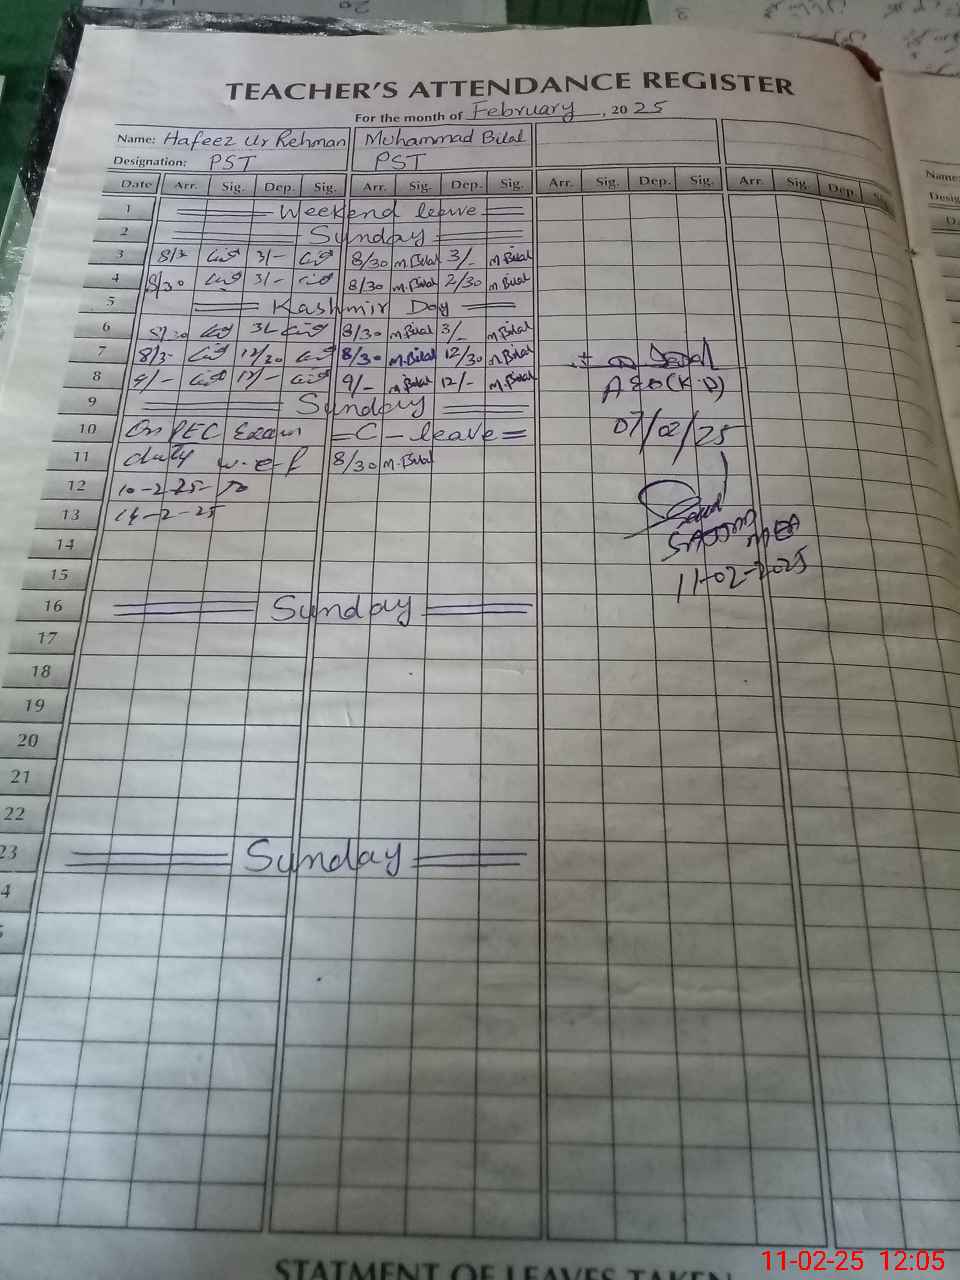 TEACHER'S ATTENDANCE REGISTER
For the month of February, 2025
Name: Hafeez Ur Rehman Muhammad Bilal
Name:
Designation: PST PST
Date Arr. Sig. Dep. Sig. Arr. Sig. Dep. Sig. Arr. Sig. Dep. Sig. Arr. Sig. Dep. Sig.
1 Weekend leave
2 Sunday
3 8/3 3/- 8/30 M.Bilal 3/- M.Bilal
4 8/30 3/- 8/30 M.Bilal 2/30 M.Bilal
5 Kashmir Day
6 8/30 3/- 8/30 M.Bilal 3/- M.Bilal
7 8/3- 12/30 8/30 M.Bilal 12/30 M.Bilal
8 9/- 12/- 9/- M.Bilal 12/- M.Bilal
AEO(K.D)
9 Sunday
07/02/25
10 On PEC Exam = C - leave =
11 duty w.e.f 8/30 M.Bilal
12 10-2-25 to
13 14-2-25
14
MEA
15
11-02-2025
16 Sunday
17
18
19
20
21
22
23 Sunday
4
STATMENT OF LEAVES TAKEN
11-02-25 12:05